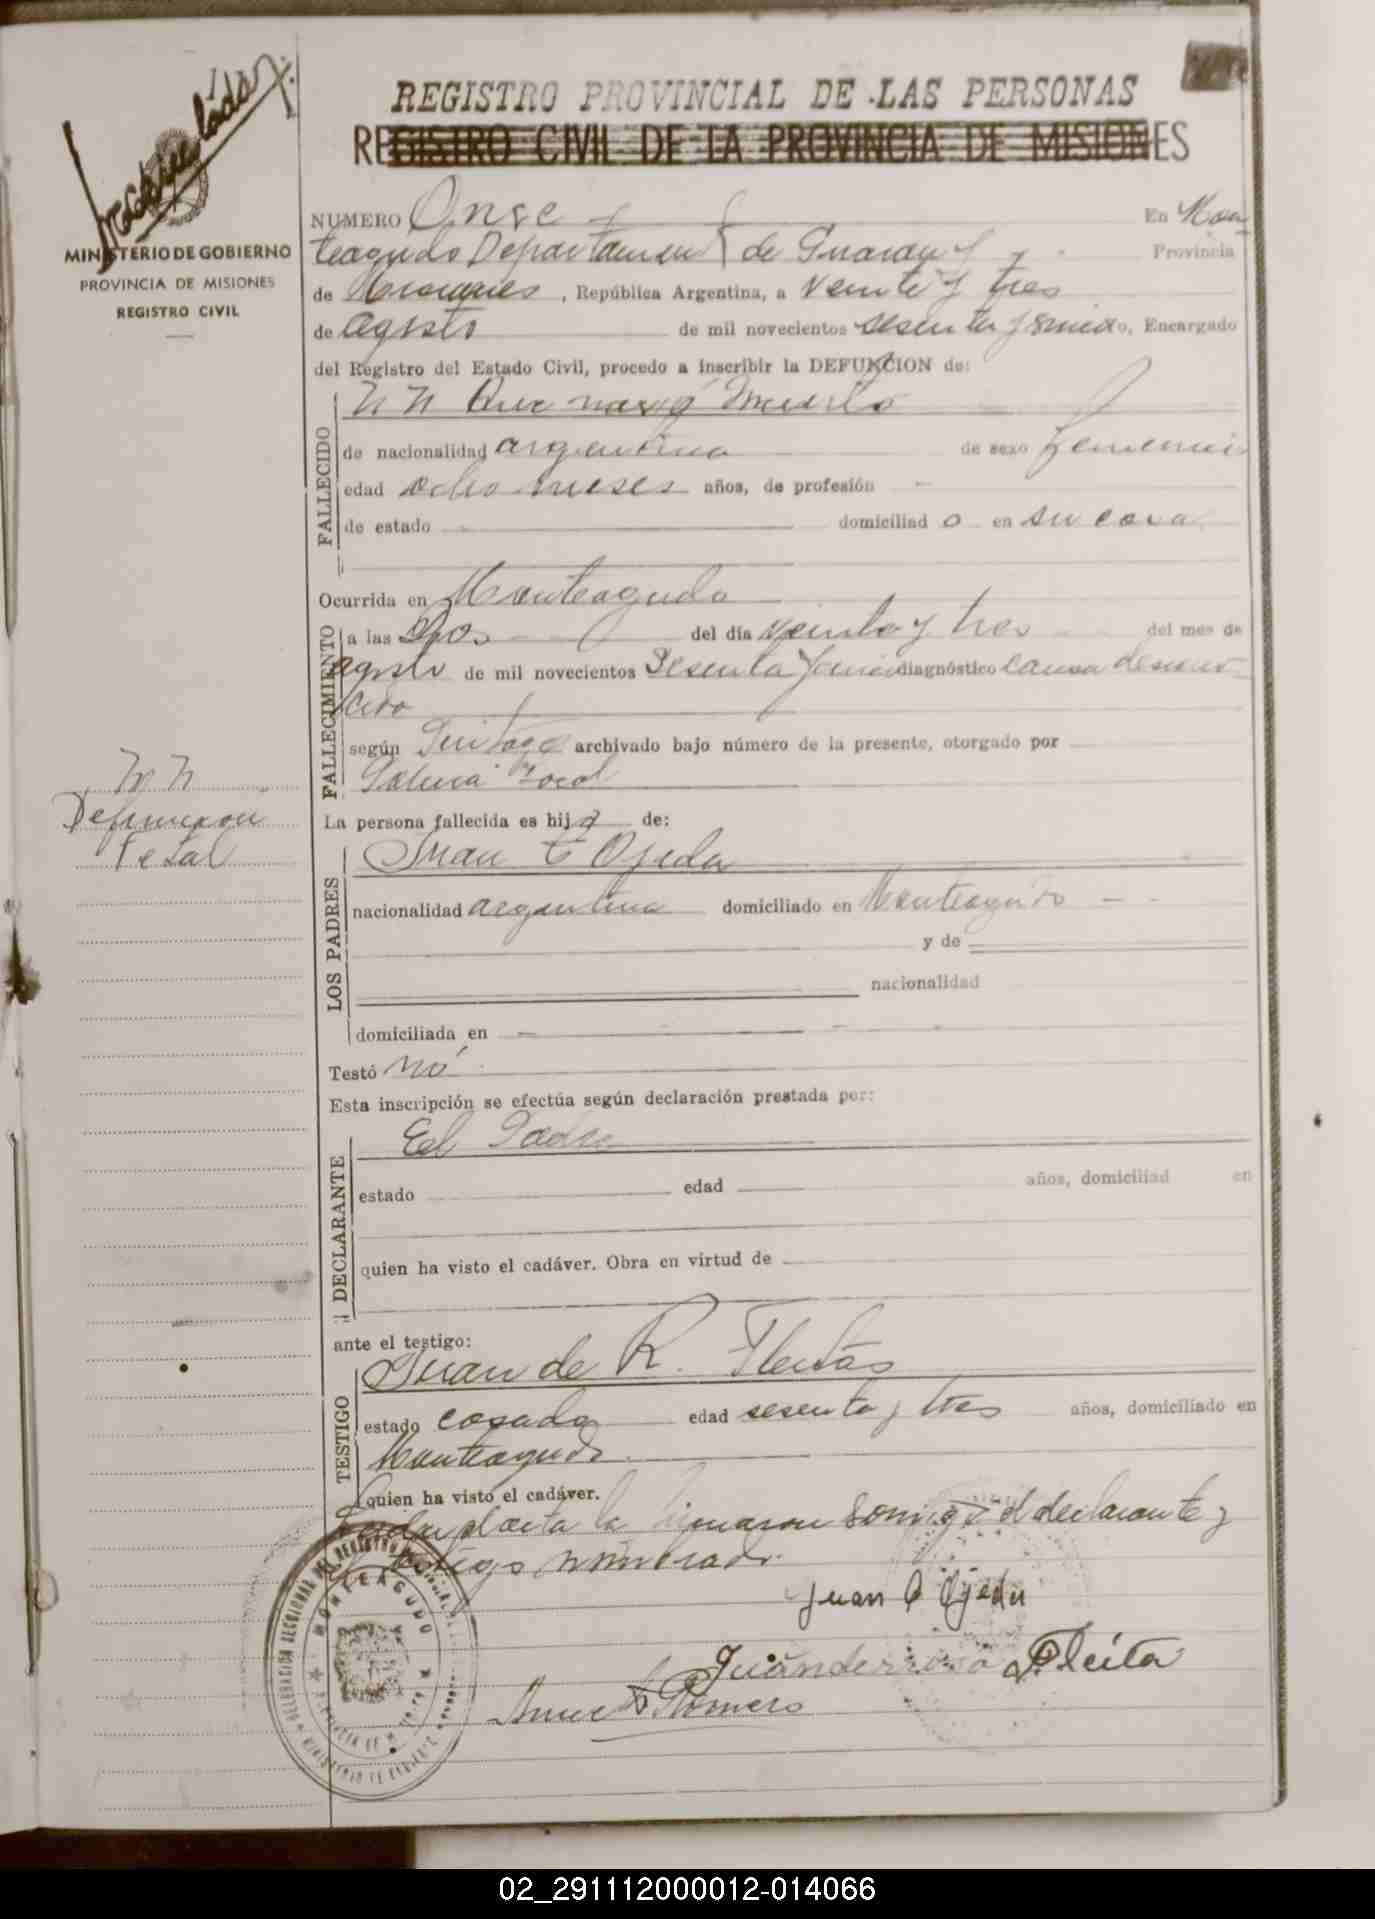 REGISTRO PROVINCIAL DE LAS PERSONAS
REGISTRO CIVIL DE LA PROVINCIA DE MISIONES
MINISTERIO DE GOBIERNO
PROVINCIA DE MISIONES
REGISTRO CIVIL
NUMERO Onse En Mon
teagudo Departamen de Guarany Provincia
de Misiones, República Argentina, a veinte y tres
de agosto de mil novecientos sesenta y, Encargado
del Registro del Estado Civil, procedo a inscribir la DEFUNCION de:
FALLECIDO
N N Que nasio Muerto
de nacionalidad argentina de sexo femenin
edad ocho meses años, de profesión -
de estado domiciliad o en su casa
Ocurrida en Monteagudo
FALLECIMIENTO
a las Dos del día veinte y tres del mes de
agosto de mil novecientos Sesenta y diagnóstico causa descono-
cida
según archivado bajo número de la presente, otorgado por
Policia Local
N N
Defuncion
Fetal
La persona fallecida es hij a de:
LOS PADRES
Juan C Ojeda
nacionalidad argentina domiciliado en Monteagudo - -
y de
nacionalidad
domiciliada en -
Testó no
Esta inscripción se efectúa según declaración prestada por:
DECLARANTE
El Padre
estado edad años, domiciliad en
quien ha visto el cadáver. Obra en virtud de
ante el testigo:
TESTIGO
Juan de R. Fleitas
estado casado edad sesenta y tres años, domiciliado en
Monteagudo
quien ha visto el cadáver.
Leida el acta la firmaron conmigo el declarante y
el testigo nombrado.
Juan C Ojeda
Juan de rosa Fleita
Romero
MONTEAGUDO
02_291112000012-014066